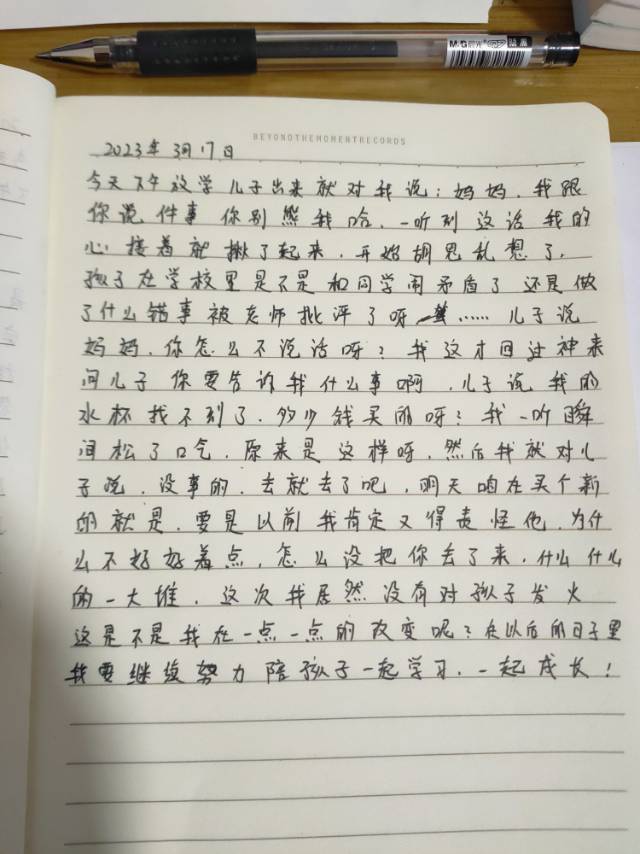 M&G
BEYONDTHEMOMENTRECORDS
2023年3月17日
今天下午放学儿子出来就对我说：妈妈，我跟
你说件事你别熊我哈，一听到这话我的
心接着就揪了起来，开始胡思乱想了，
孩子在学校里是不是和同学闹矛盾了还是做
了什么错事被老师批评了呀……儿子说
妈妈，你怎么不说话呀？我这才回过神来
问儿子你要告诉我什么事啊，儿子说我的
水杯找不到了，多少钱买的呀？我一听瞬
间松了口气，原来是这样呀，然后我就对儿
子说，没事的，去就去了吧，明天咱在买个新
的就是，要是以前我肯定又得责怪他，为什
么不好好着点，怎么没把你去了来，什么什么
的一大堆，这次我居然没有对孩子发火
这是不是我在一点一点的改变呢？在以后的日子里
我要继续努力陪孩子一起学习，一起成长！